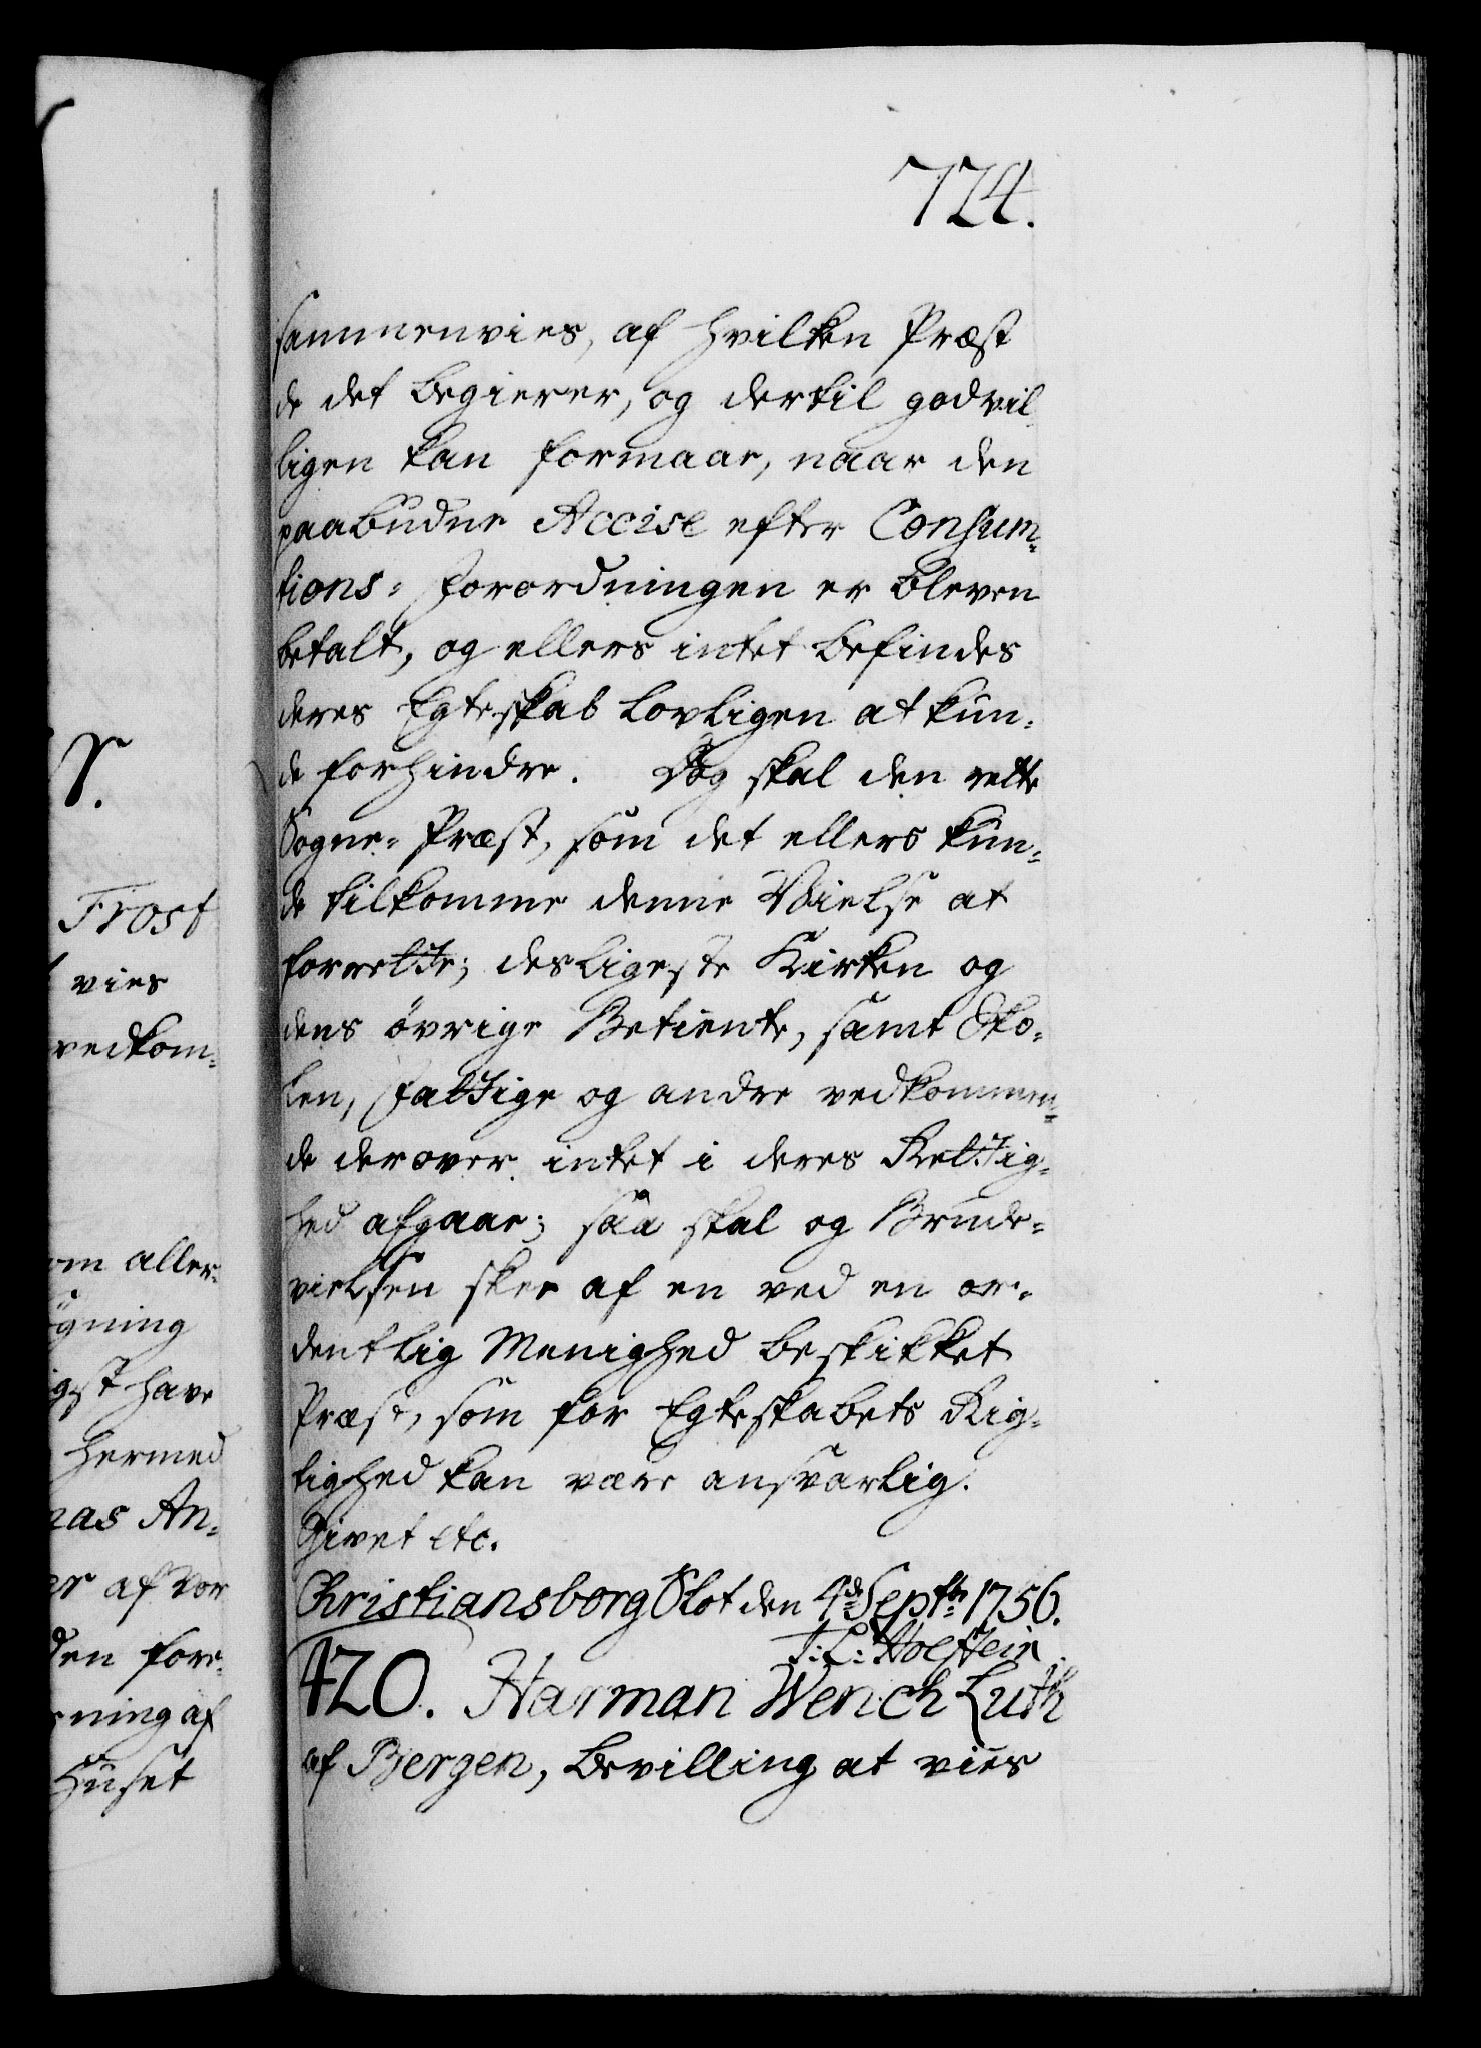 724.
sammenvies, af hvilken Præst
de det begierer, og dertil godvil-
ligen kan formaae, naar den
paabudne Accise efter Consum-
tions- Forordningen er bleven
betalt, og ellers intet befindes
deres Egteskab lovligen at kun-
de forhindre. Dog skal den rette
Sogne- Præst, som det ellers kun-
de tilkomme denne Vielse at
forrette; desligeste Kirken og
dens övrige Betiente, samt Sko-
len, Fattige og andre vedkommen-
de derover intet i deres Rettig-
hed afgaae; saa skal og Brude-
vielsen skee af en ved en or-
dentlig Menighed beskikket
Præst, som for Egteskabets Rig-
tighed kan være ansvarlig.
Givet etc.
Christiansborg Slot den 4de Septbr 1756.
J: L: Holstein.
420. Harman Wench Luth
af Bergen, bevilling at vies
Frost
vies
vedkom-
om aller-
igst have
hermed
nas An-
er af vor
den fore-
ning af
Huset